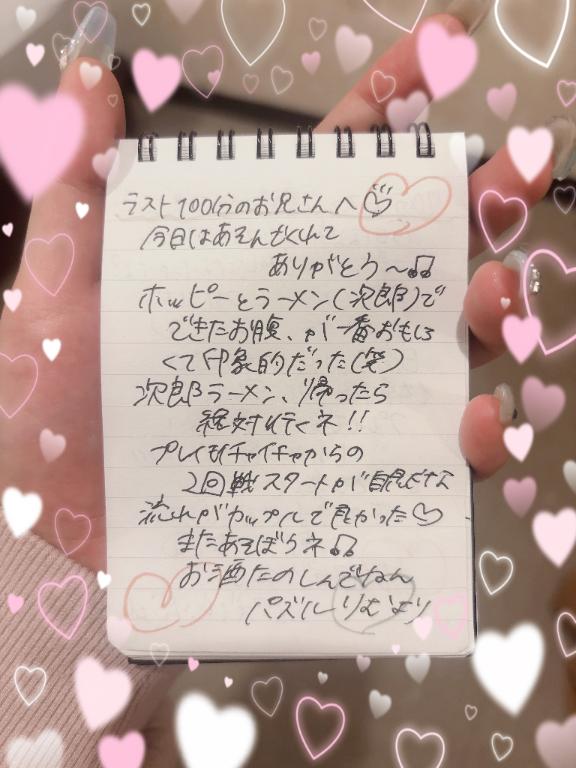 ラスト100分のお兄さんへ♡
今日はあそんでくれて
ありがとう〜♫
ホッピーとラーメン(次郎)で
できたお腹、が一番おもしろ
くて印象的だった(笑)
次郎ラーメン、帰ったら
絶対行くネ!!
プレイもイチャイチャからの
2回戦スタートが自然な
流れがカップルで良かった♡
またあそぼうネ♫
お酒たのしんでなん
パズルりむより